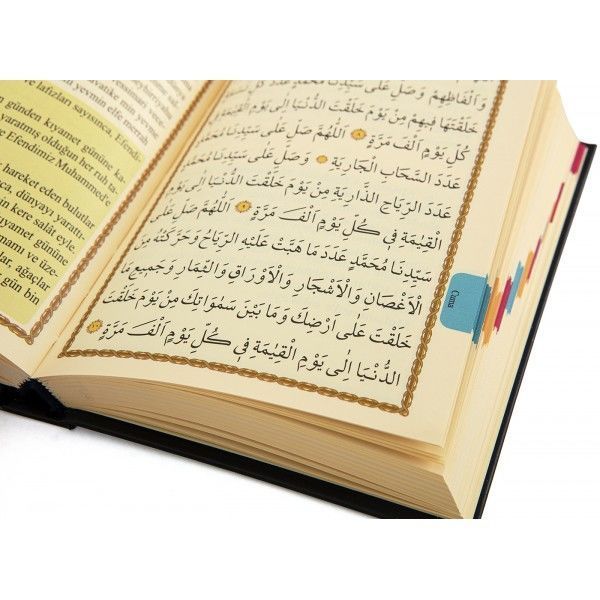 günden kıyamet gününe ka-
yaratmış olduğun her ruh ta-
ve Efendimiz Muhammed'e
hareket eden bulutlar
ca, dünyayı yarattı-
n kere salât eyle.
ıyamet gününe
mamı ve üze-
lar, ağaçlar
gün bin
وَاَلْفَاظِهِمْ وَصَلِّ عَلٰى سَيِّدِنَا مُحَمَّدٍ عَدَدَ
خَلَقْتَهَا فِيهِمْ مِنْ يَوْمَ خَلَقْتَ الدُّنْيَا اِلٰى يَوْمِ الْقِيٰمَةِ فِي
كُلِّ يَوْمٍ اَلْفَ مَرَّةٍ اَللّٰهُمَّ صَلِّ عَلٰى سَيِّدِنَا مُحَمَّدٍ
عَدَدَ السَّحَابِ الْجَارِيَةِ وَصَلِّ عَلٰى سَيِّدِنَا مُحَمَّدٍ
عَدَدَ الرِّيَاحِ الذَّارِيَةِ مِنْ يَوْمَ خَلَقْتَ الدُّنْيَا اِلٰى يَوْمِ
الْقِيٰمَةِ فِي كُلِّ يَوْمٍ اَلْفَ مَرَّةٍ اَللّٰهُمَّ صَلِّ عَلٰى
سَيِّدِنَا مُحَمَّدٍ عَدَدَ مَا هَبَّتْ عَلَيْهِ الرِّيَاحُ وَحَرَّكَتْهُ مِنَ
الْاَغْصَانِ وَالْاَشْجَارِ وَالْاَوْرَاقِ وَالثِّمَارِ وَجَمِيعِ مَا
خَلَقْتَ عَلٰى اَرْضِكَ وَمَا بَيْنَ سَمٰوَاتِكَ مِنْ يَوْمَ خَلَقْتَ
الدُّنْيَا اِلٰى يَوْمِ الْقِيٰمَةِ فِي كُلِّ يَوْمٍ اَلْفَ مَرَّةٍ
Cuma